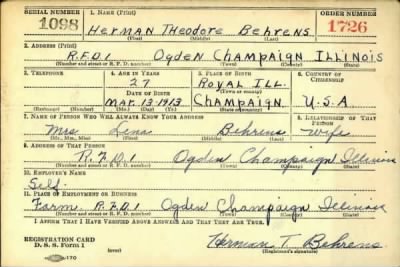 SERIAL NUMBER 1. NAME (Print) ORDER NUMBER
1098 HERMAN THEODORE BEHRENS 1726
(First) (Middle) (Last)
2. ADDRESS (Print)
R.F.D.1 OGDEN CHAMPAIGN ILLINOIS
(Number and street or R. F. D. number) (Town) (County) (State)
3. TELEPHONE 4. AGE IN YEARS 5. PLACE OF BIRTH 6. COUNTRY OF CITIZENSHIP
27 ROYAL ILL.
DATE OF BIRTH (Town or county)
MAR. 13 1913 CHAMPAIGN U.S.A
(Exchange) (Number) (Mo.) (Day) (Yr.) (State or country)
7. NAME OF PERSON WHO WILL ALWAYS KNOW YOUR ADDRESS 8. RELATIONSHIP OF THAT PERSON
Mrs. Lena Behrens wife
(Mr., Mrs., Miss) (First) (Middle) (Last)
9. ADDRESS OF THAT PERSON
R.F.D.1 Ogden Champaign Illinois
(Number and street or R. F. D. number) (Town) (County) (State)
10. EMPLOYER'S NAME
Self.
11. PLACE OF EMPLOYMENT OR BUSINESS
Farm R.F.D.1 Ogden Champaign Illinois
(Number and street or R. F. D. number) (Town) (County) (State)
I AFFIRM THAT I HAVE VERIFIED ABOVE ANSWERS AND THAT THEY ARE TRUE.
REGISTRATION CARD Herman T. Behrens
D. S. S. Form 1 (Registrant's signature)